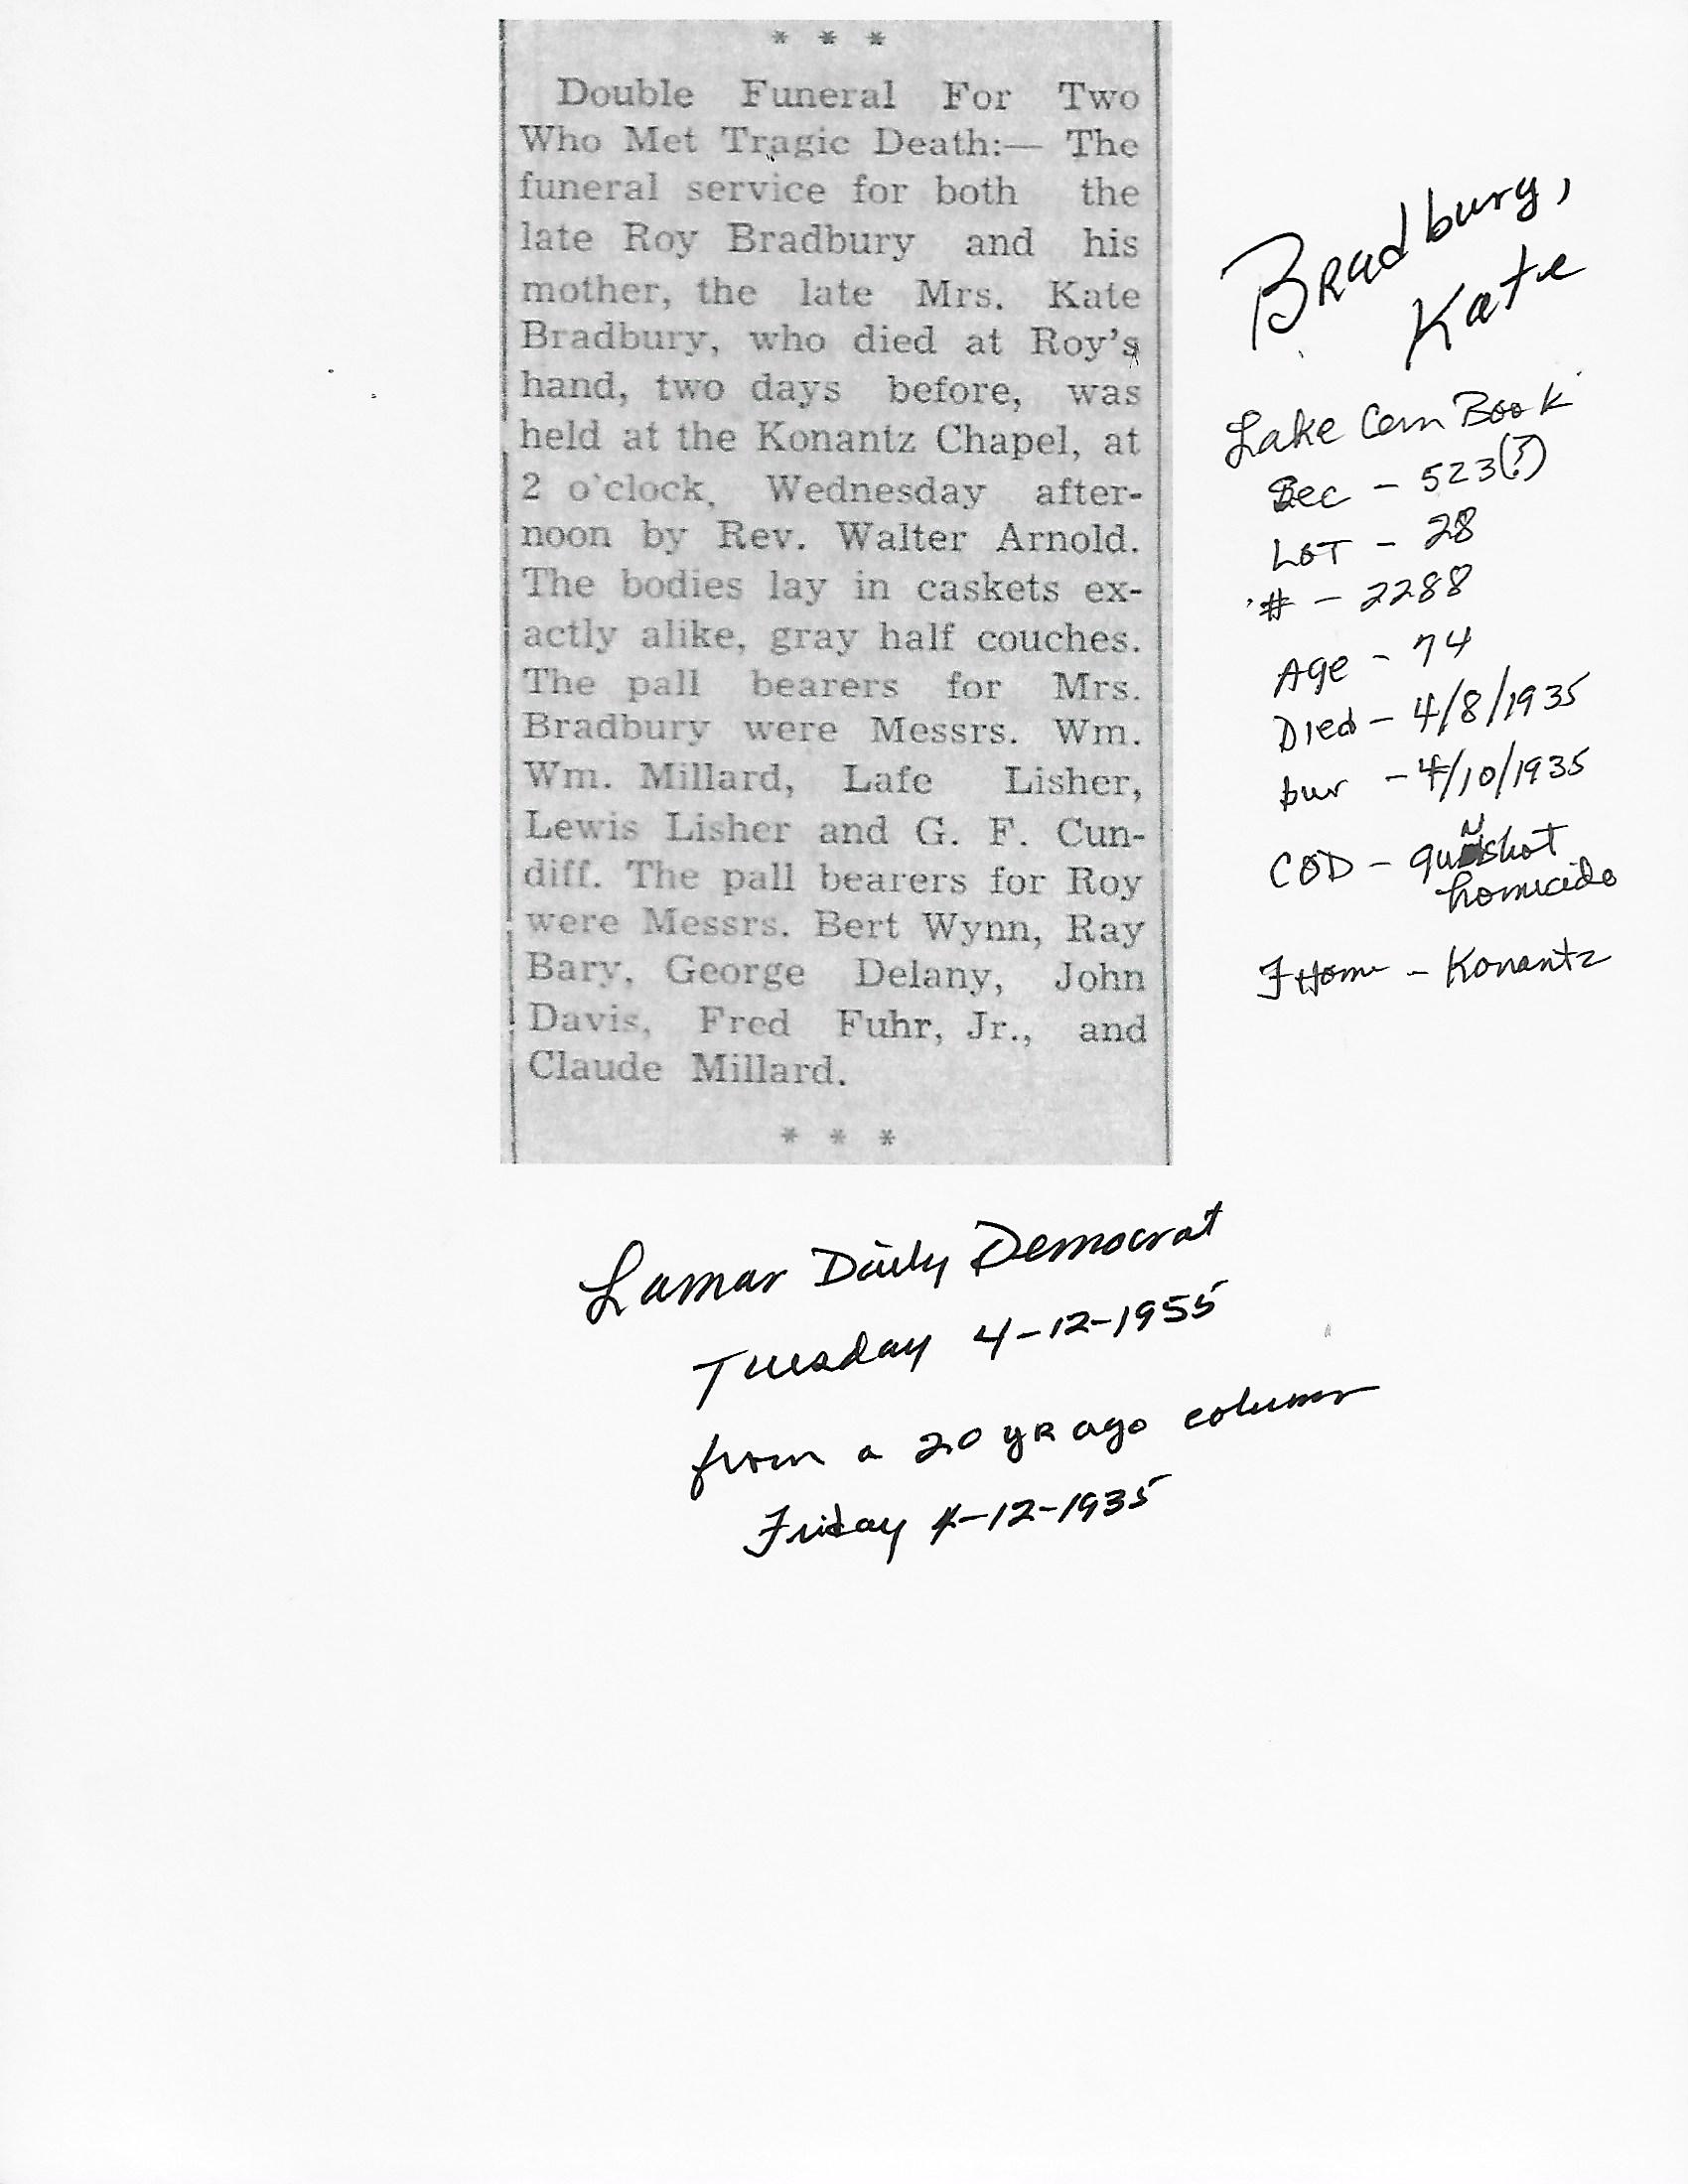 * * *
Double Funeral For Two
Who Met Tragic Death:— The
funeral service for both the
late Roy Bradbury and his
mother, the late Mrs. Kate
Bradbury, who died at Roy's
hand, two days before, was
held at the Konantz Chapel, at
2 o'clock, Wednesday after-
noon by Rev. Walter Arnold.
The bodies lay in caskets ex-
actly alike, gray half couches.
The pall bearers for Mrs.
Bradbury were Messrs. Wm.
Wm. Millard, Lafe Lisher,
Lewis Lisher and G. F. Cun-
diff. The pall bearers for Roy
were Messrs. Bert Wynn, Ray
Bary, George Delany, John
Davis, Fred Fuhr, Jr., and
Claude Millard.
* * *
Bradbury,
Kate
Lake Cem Book
Sec - 523(?)
LOT - 28
# - 2288
Age - 74
Died - 4/8/1935
bur - 4/10/1935
COD - gunshot
homicide
FHome - Konantz
Lamar Daily Democrat
Tuesday 4-12-1955
from a 20 yR ago column
Friday 4-12-1935